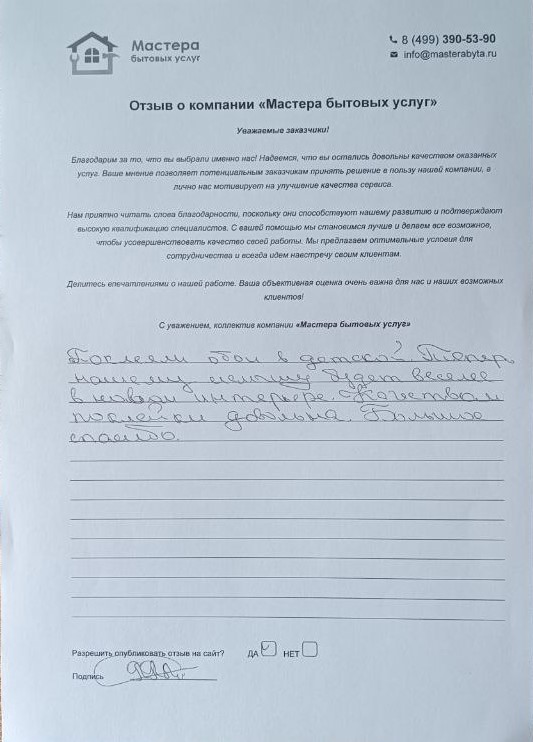 Мастера
бытовых услуг
8 (499) 390-53-90
info@masterabyta.ru
Отзыв о компании «Мастера бытовых услуг»
Уважаемые заказчики!
Благодарим за то, что вы выбрали именно нас! Надеемся, что вы остались довольны качеством оказанных
услуг. Ваше мнение позволяет потенциальным заказчикам принять решение в пользу нашей компании, а
лично нас мотивирует на улучшение качества сервиса.
Нам приятно читать слова благодарности, поскольку они способствуют нашему развитию и подтверждают
высокую квалификацию специалистов. С вашей помощью мы становимся лучше и делаем все возможное,
чтобы усовершенствовать качество своей работы. Мы предлагаем оптимальные условия для
сотрудничества и всегда идем навстречу своим клиентам.
Делитесь впечатлениями о нашей работе. Ваша объективная оценка очень важна для нас и наших возможных
клиентов!
С уважением, коллектив компании «Мастера бытовых услуг»
Поклеели обои в детской. Тепер
нашему малышу будет веселее
в новом интерьере. Качеством
поклейки довольна. Большое
спасибо.
Разрешить опубликовать отзыв на сайт? ДА НЕТ
Подпись